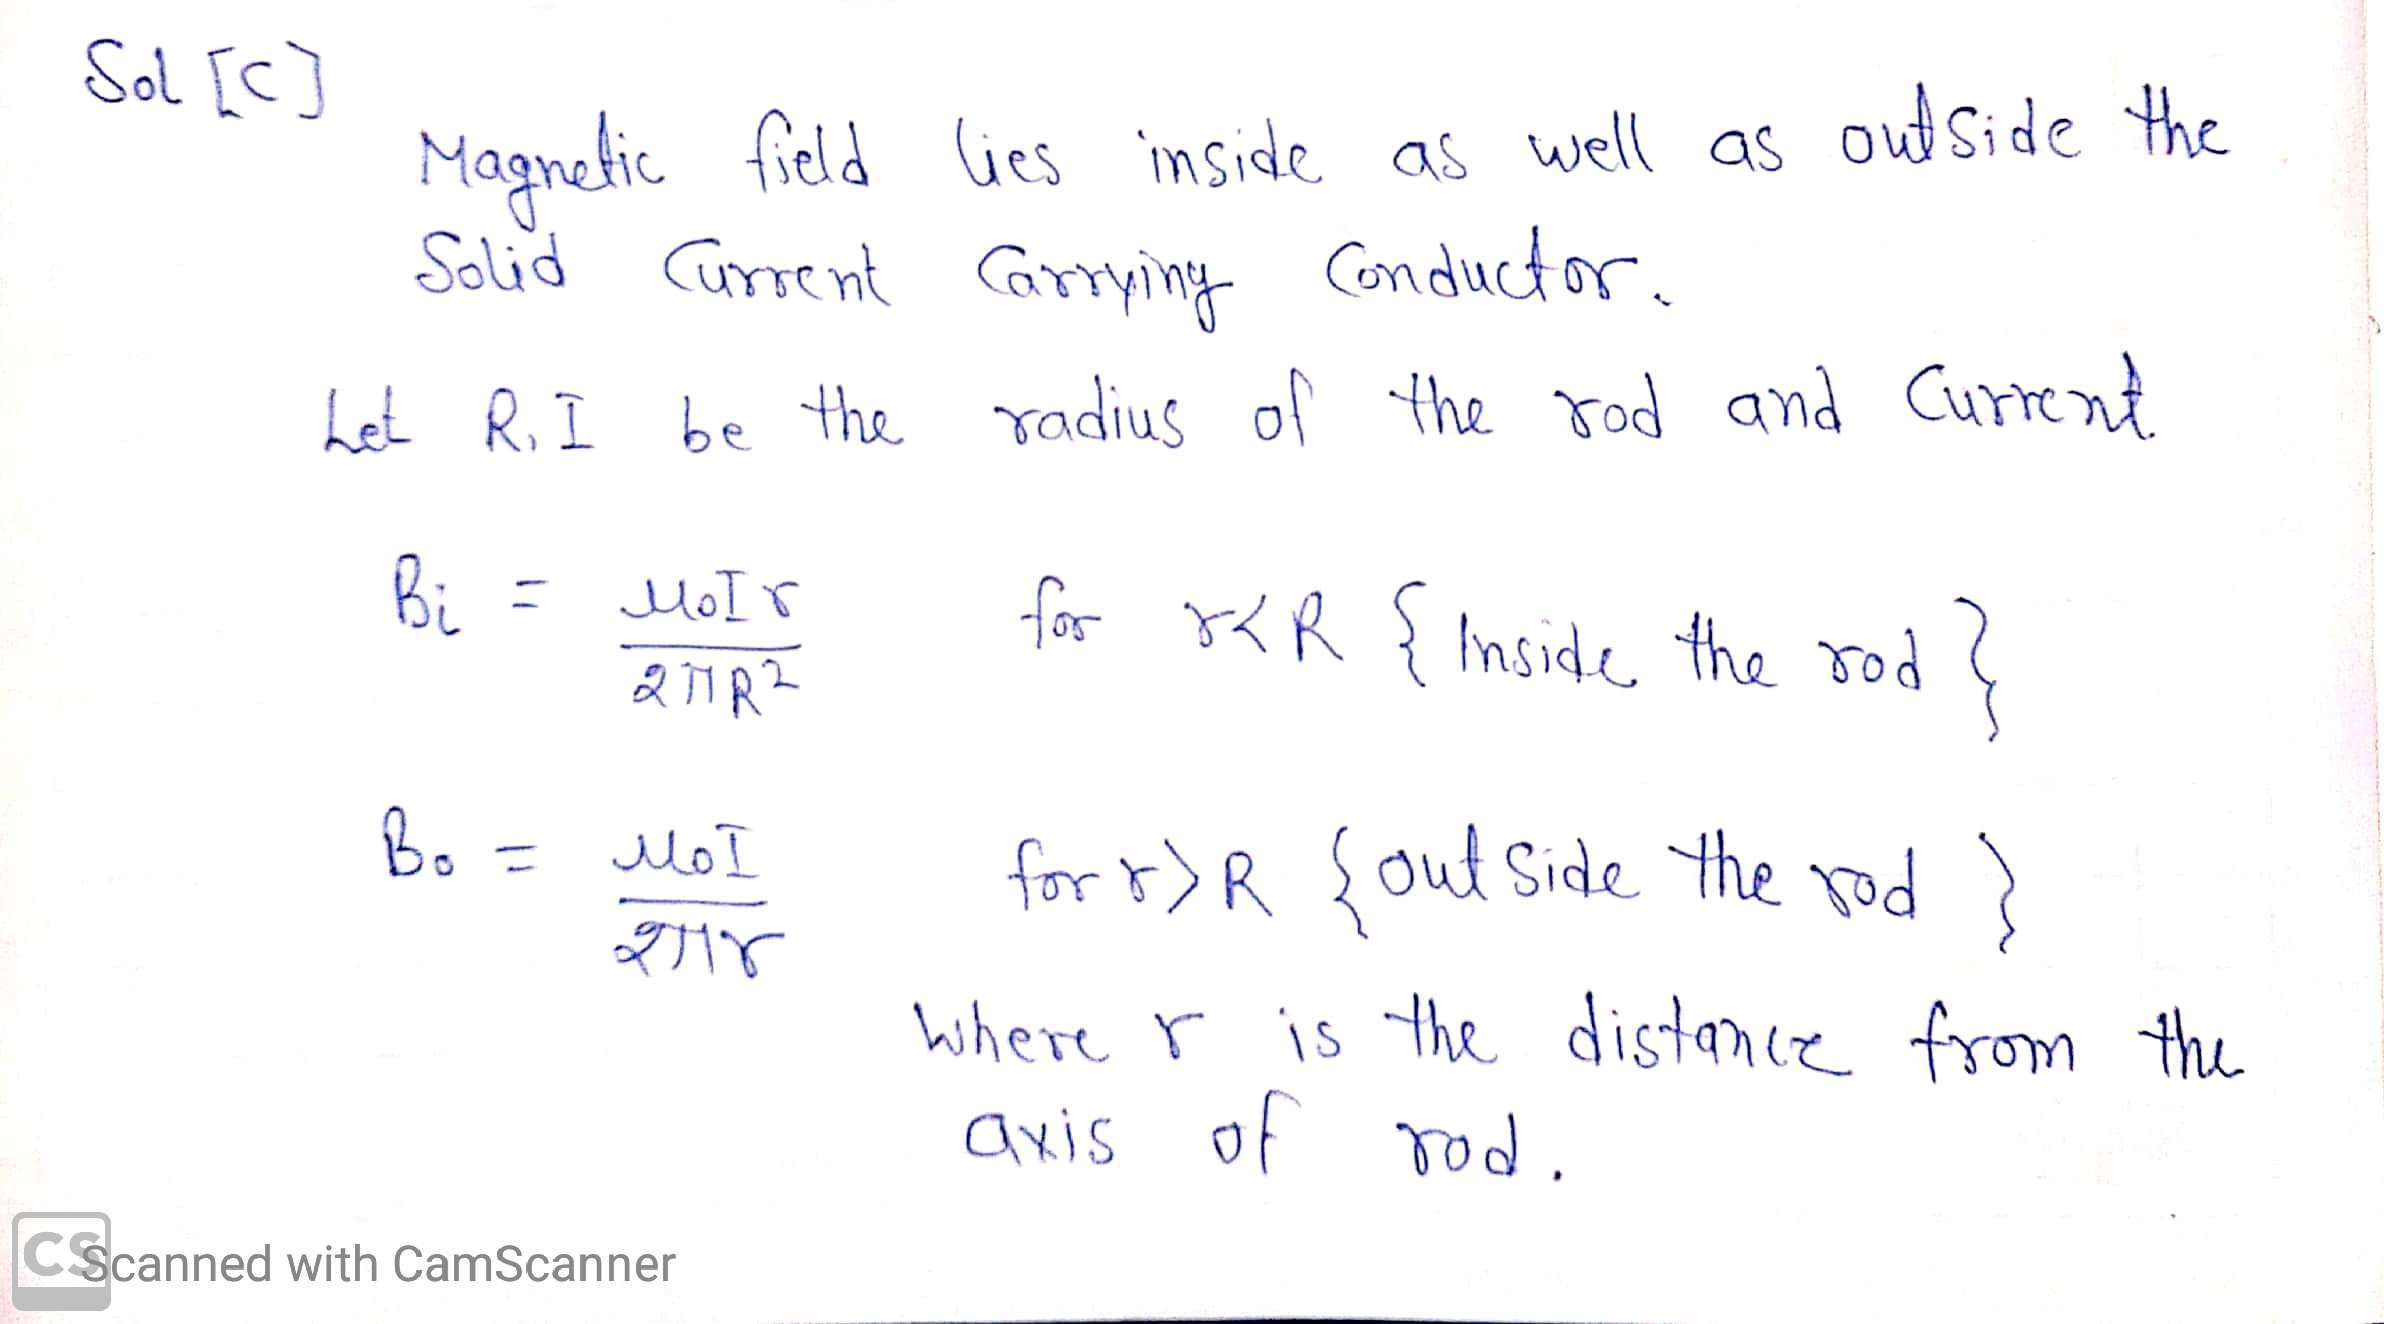 Sol [C]
Magnetic field lies inside as well as outside the
Solid Current Carrying Conductor.
Let R, I be the radius of the rod and Current
Bi = μ0Ir / 2πR² for r<R { Inside the rod }
Bo = μ0I / 2πr for r>R { outside the rod }
Where r is the distance from the
axis of rod.
CS Scanned with CamScanner